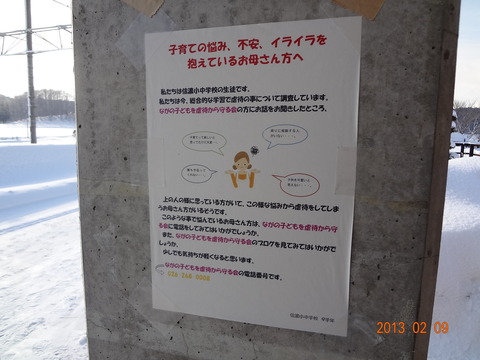 子育ての悩み、不安、イライラを
抱えているお母さん方へ
私たちは信濃小中学校の生徒です。
私たちは今、総合的な学習で虐待の事について調査しています。
ながの子どもを虐待から守る会の方にお話をお聞きしたところ、
上の人の様に思っている方がいて、この様な悩みから虐待をしてしま
うお母さん方がいるそうです。
このような事で悩んでいるお母さん方は、ながの子どもを虐待から守
る会に電話をしてみてはいかがでしょうか。
また、ながの子どもを虐待から守る会のブログを見てみてはいかがで
しょうか。
少しでも気持ちが軽くなると思います。
ながの子どもを虐待から守る会の電話番号です。
信濃小中学校
2013 02 09